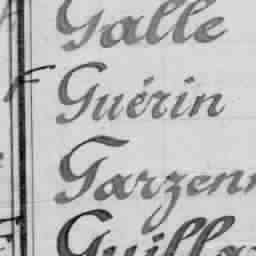 Galle
Guérin
Garzenn
Guillar